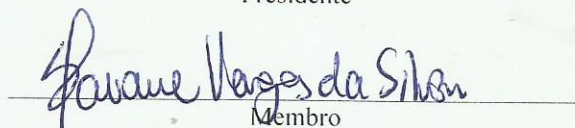 Presidente
Vargas da Silva
Membro